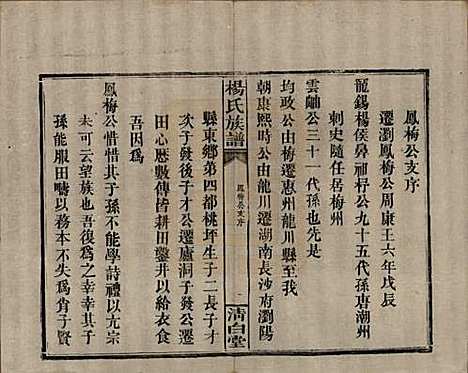 鳳梅公支序
遷瀏鳳梅公周康王六年戊辰
寵錫楊侯鼻祖杼公九十五代孫唐潮州
刺史隨任居梅州
雲岫公三十一代孫也先是
均政公由梅遷惠州龍川縣至我
朝康熙時公由龍川遷湖南長沙府瀏陽
楊氏族譜
鳳梅公支序
一
清白堂
縣東鄉第四都桃坪生子二長子才
次子發後子才公遷廬洞子發公遷
田心厯數傳皆耕田鑿井以給衣食
吾因爲
鳳梅公惜惜其子孫不能學詩禮以亢宗
未可云望族也吾復爲之幸幸其子
孫能服田疇以務本不失爲肖子賢